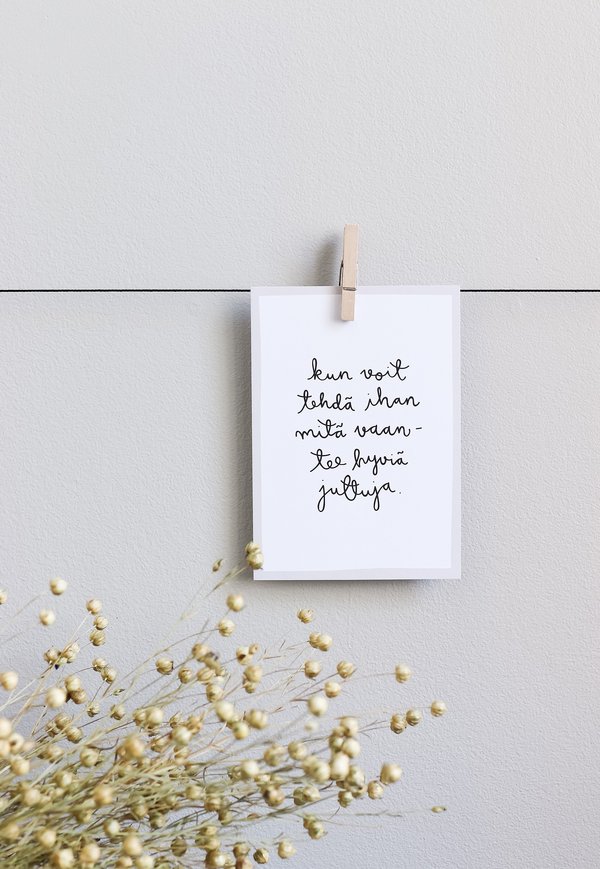 kun voit
tehdä ihan
mitä vaan-
tee hyviä
juttuja.